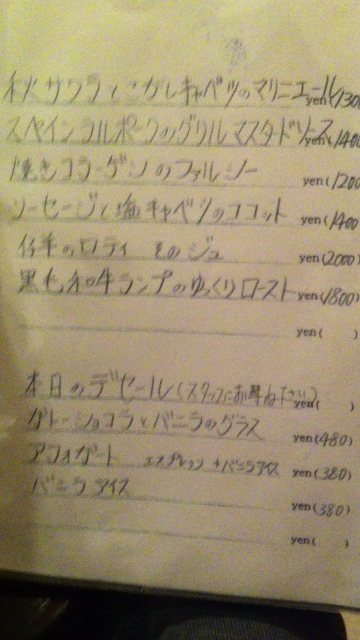 秋サワラとこがしキャベツのマリニエール yen(130
スペインラルポークのグリルマスタードソース yen(1400
焼きコラーゲンのファルシー yen(1200
ソーセージと塩キャベツのココット yen(1400
仔羊のロティ そのジュ yen(2000)
黒毛和牛ランプのゆっくりロースト yen(1800)
yen( )
本日のデセール(スタッフにお尋ねください) yen( )
ガトーショコラとバニラのグラス yen(480)
アフォガート エスプレッソ+バニラアイス yen(380)
バニラアイス yen(380)
yen( )